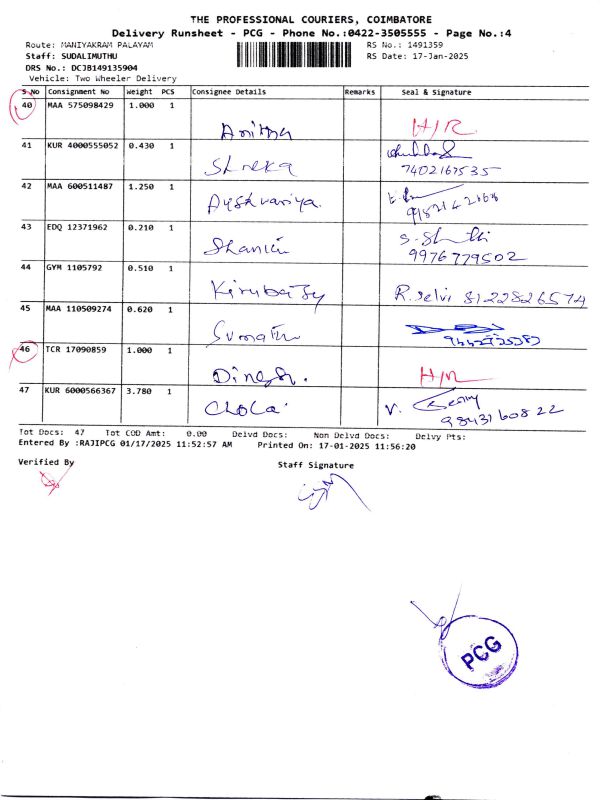 THE PROFESSIONAL COURIERS, COIMBATORE
Delivery Runsheet - PCG - Phone No.:0422-3505555 - Page No.:4
Route: MANIYAKRAM PALAYAM RS No.: 1491359
Staff: SUDALIMUTHU RS Date: 17-Jan-2025
DRS No.: DCJB149135904
Vehicle: Two Wheeler Delivery
S No Consignment No Weight PCS Consignee Details Remarks Seal & Signature
40 MAA 575098429 1.000 1
Anitha H/R
41 KUR 4000555052 0.430 1
7402167535
42 MAA 600511487 1.250 1
Ayshvariya.
43 EDQ 12371962 0.210 1
9976779502
44 GYM 1105792 0.510 1
R. Selvi 8122826574
45 MAA 110509274 0.620 1
46 TCR 17090859 1.000 1
Dinesh. H/R
47 KUR 6000566367 3.780 1
Chola. V.
9843160822
Tot Docs: 47 Tot COD Amt: 0.00 Delvd Docs: Non Delvd Docs: Delvy Pts:
Entered By :RAJIPCG 01/17/2025 11:52:57 AM Printed On: 17-01-2025 11:56:20
Verified By Staff Signature
PCG